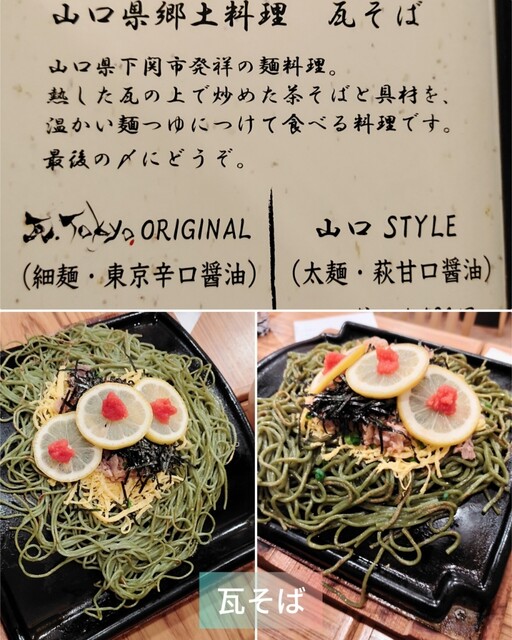 山口県郷土料理　瓦そば
山口県下関市発祥の麺料理。
熱した瓦の上で炒めた茶そばと具材を、
温かい麺つゆにつけて食べる料理です。
最後の〆にどうぞ。
瓦.Tokyo ORIGINAL
（細麺・東京辛口醤油）
山口 STYLE
（太麺・萩甘口醤油）
瓦そば